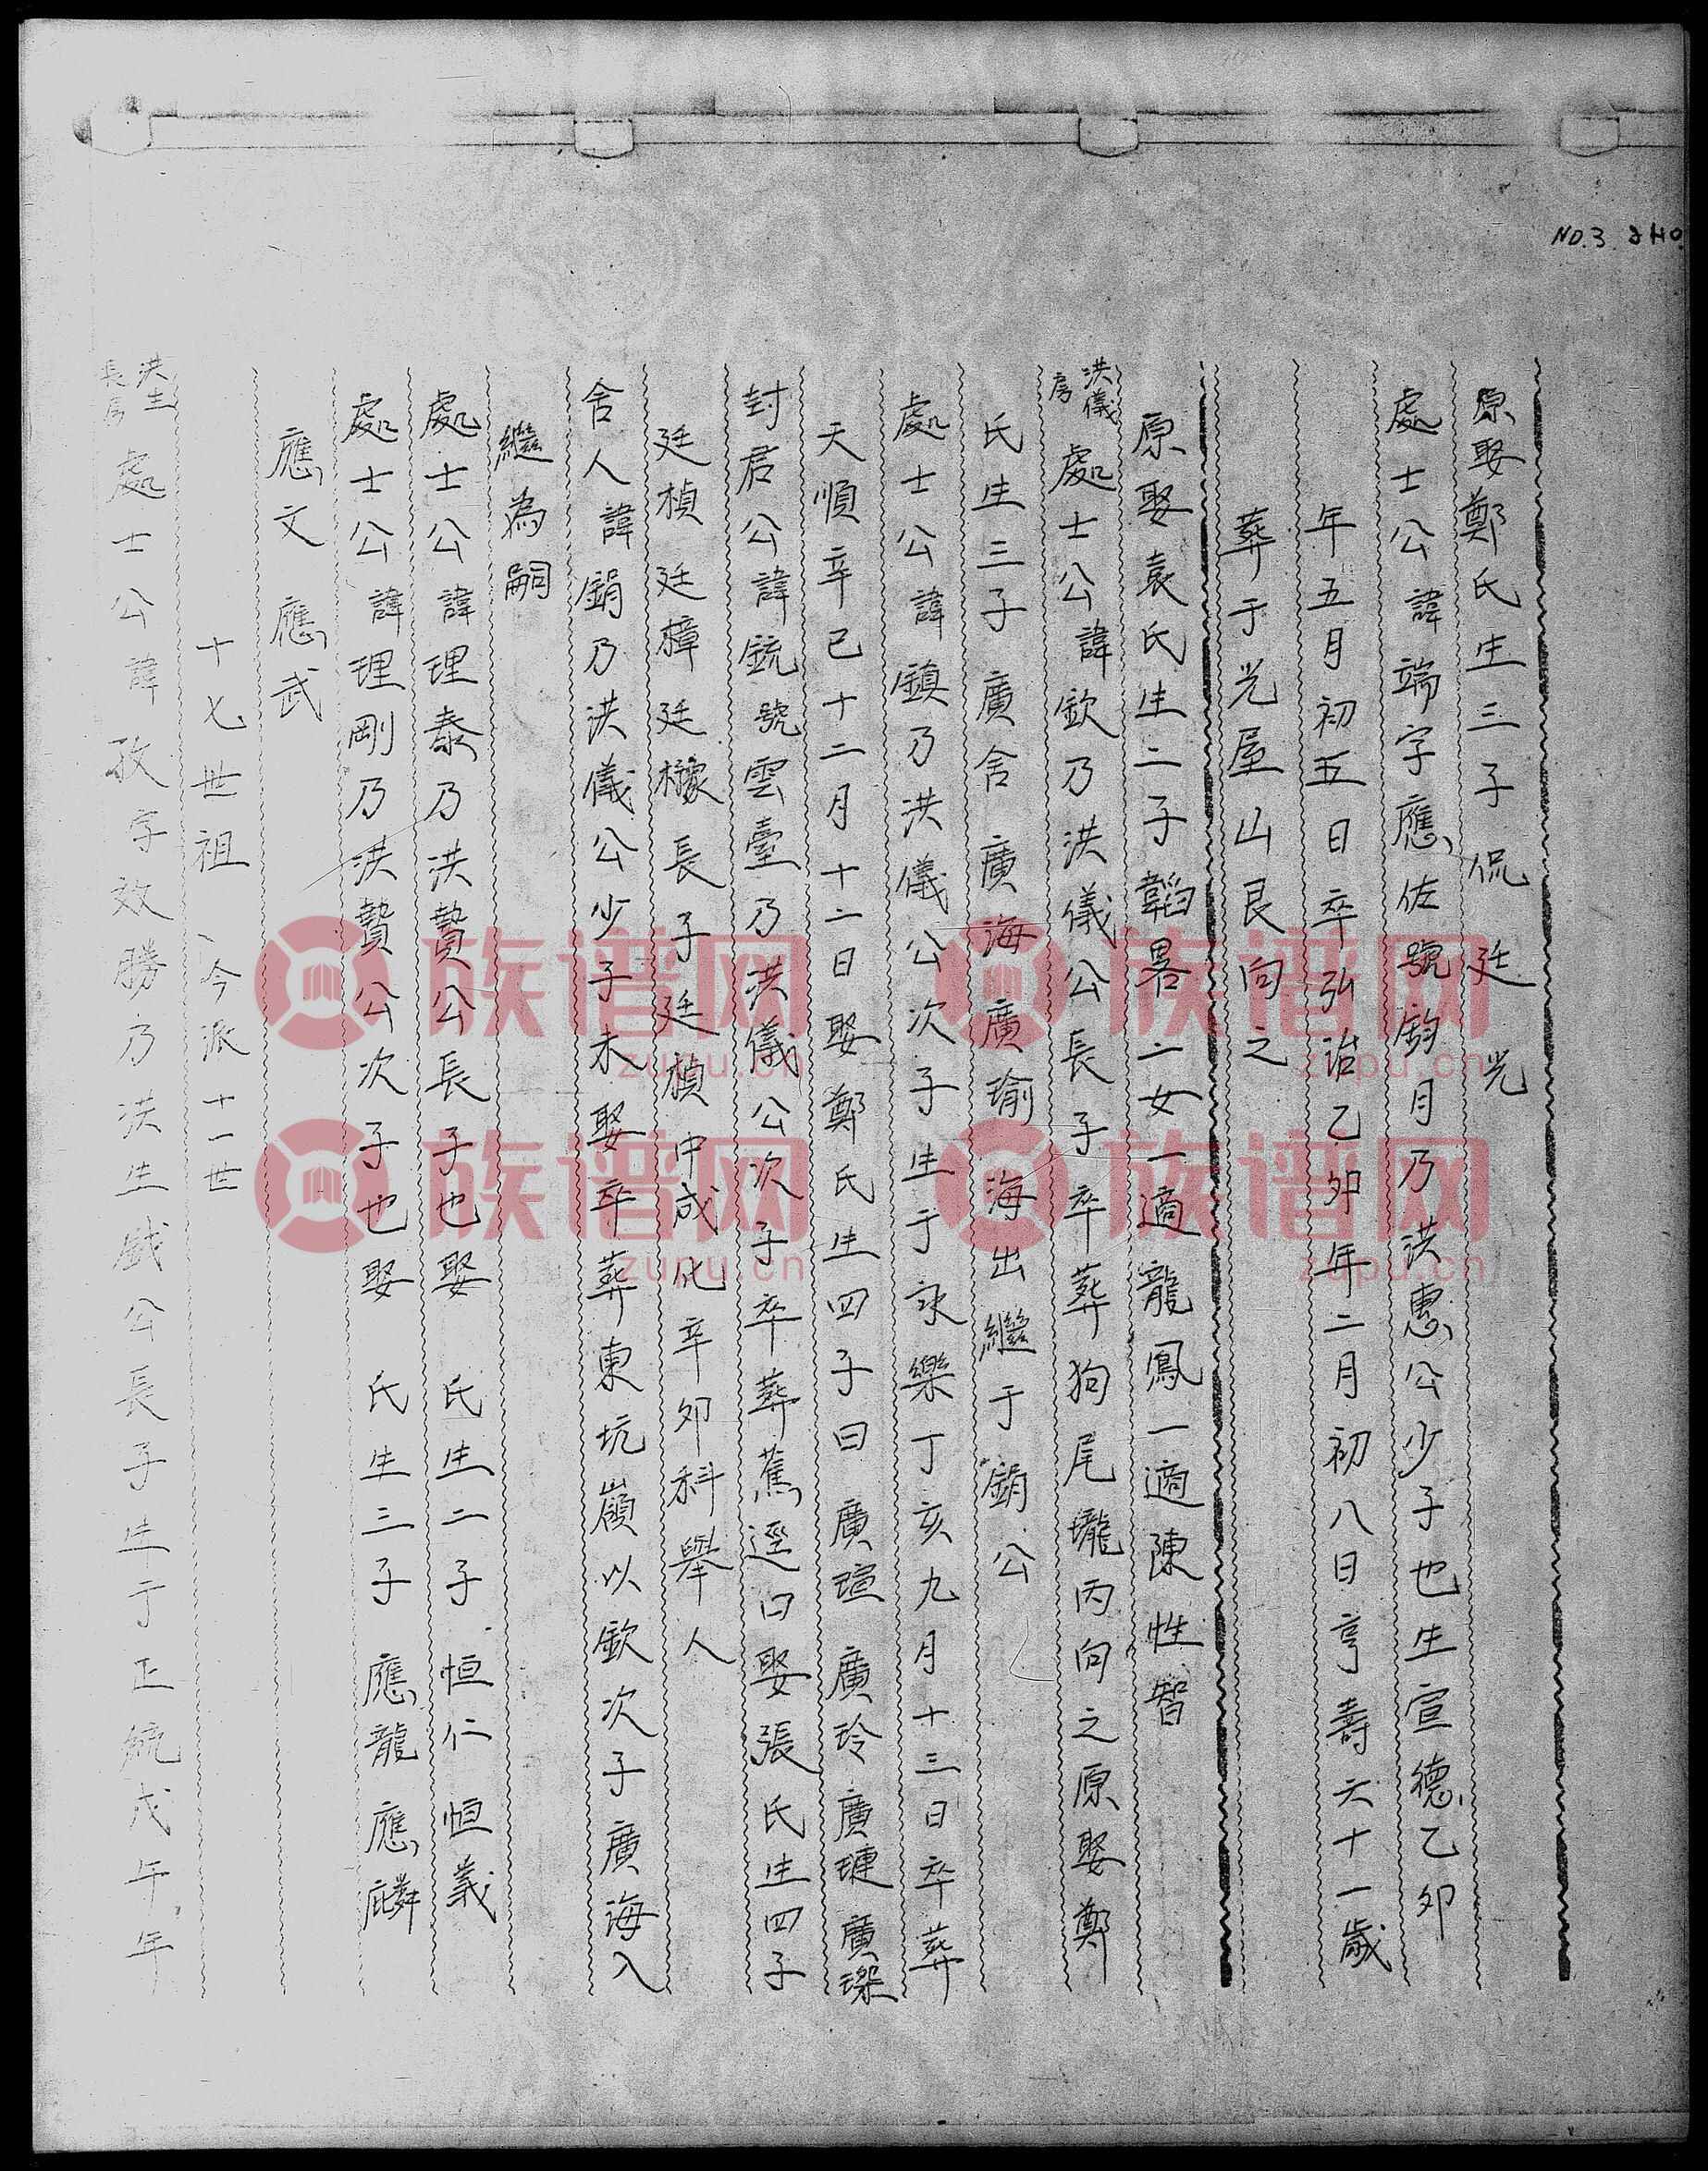 NO.3
原娶鄭氏生三子 侃 廷 光
處士公諱端字應佐號鈞月乃洪惠公少子也生宣德乙夘
年五月初五日卒弘治乙夘年二月初八日亨壽六十一歲
葬于光屋山艮向之
原娶袁氏生二子韜畧二女一適龍鳳一適陳性智
洪儀房
處士公諱欽乃洪儀公長子卒葬狗尾壠丙向之原娶鄭
氏生三子 廣舍 廣海 廣瑜 海出繼于鋿公
處士公諱鎮乃洪儀公次子生于永樂丁亥九月十三日卒葬
天順辛已十二月十二日娶鄭氏生四子曰 廣瑄 廣玲 廣璉 廣琛
封君公諱銃號雲臺乃洪儀公次子卒葬蕉逕口娶張氏生四子
廷楨 廷樟 廷櫞 長子廷楨中成化辛夘科舉人
舍人諱鋿乃洪儀公少子未娶卒葬東坑嶺以欽次子廣海入
繼為嗣
處士公諱理泰乃洪贄公長子也娶 氏生二子 恒仁 恒義
處士公諱理剛乃洪贄公次子也娶 氏生三子 應龍 應麟
應文 應武
十七世祖、今派十一世
洪生長房
處士公諱孜字效勝乃洪生戯公長子生于正統戊午年
族谱网
zupu.cn
族谱网
zupu.cn
族谱网
zupu.cn
族谱网
zupu.cn